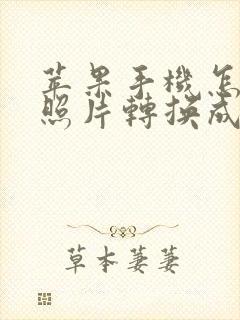 苹果手機怎
照片轉換成
草本萋萋